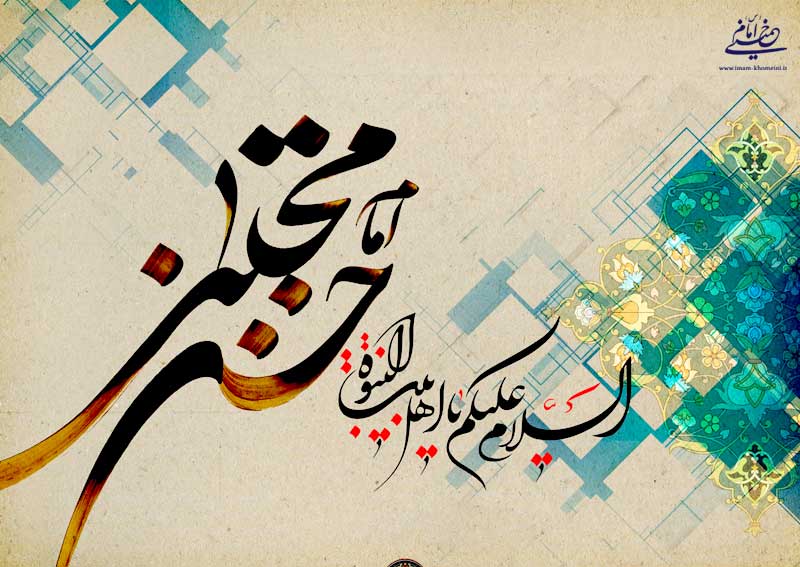 امام خمینی
www.imam-khomeini.ir
امام
حسن
مجتبی
السلام علیکم یا اهل بیت النبوة